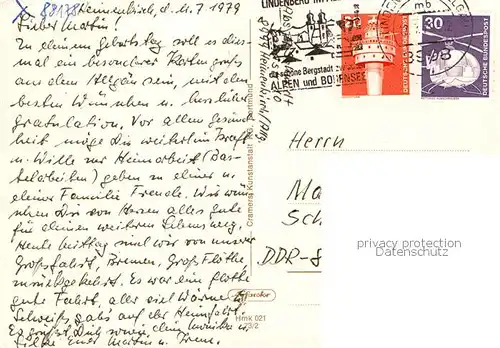 88178
Heimenkirch, d. 11.7.1979
Lieber Martin!
Zu deinem Geburtstag soll es dies-
mal ein besonderer Kartengruß
aus dem Allgäu sein, mit den
besten Wünschen u. herzlicher
Gratulation. Vor allem Gesund-
heit möge Dir weiterhin Kraft
u. Wille zur Heimarbeit (Bas-
telarbeiten) geben zu deiner u.
deiner Familie Freude. Wir wün-
schen Dir von Herzen alles Gute
für deinen weiteren Lebensweg.
Heute Mittag sind wir von unserer
Großfahrt, Bremen, Groß Flöthe
zurückgekehrt. Es war eine flotte
gute Fahrt, aber viel Wärme u.
Schweiß gab's auf der Heimfahrt.
Es grüßt Dich sowie deine
Martin u. Irene.
LINDENBERG IM
die schöne Bergstadt zwischen
ALPEN und BODENSEE
mb
DEUTSCHE BUNDESPOST
30
DEUTSCHE BUNDESPOST
Cramers Kunstanstalt KG, Dortmund
Hmk 021
Herrn
Ma
Sch
DDR-8
privacy protection
Datenschutz